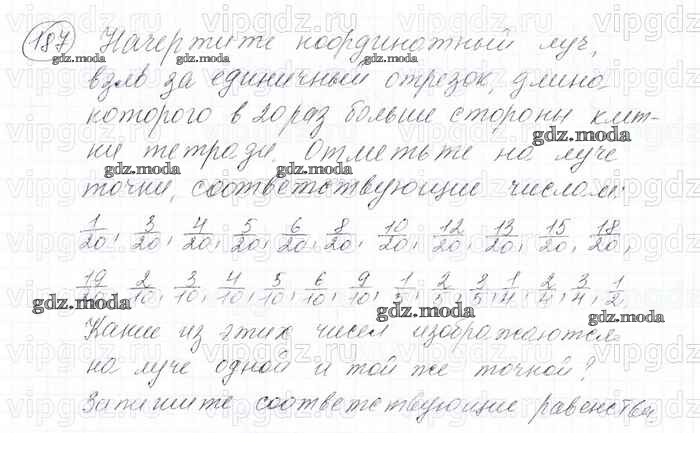 187 Начертите координатный луч,
взяв за единичный отрезок, длина
которого в 20 раз больше стороны клет-
ки тетради. Отметьте на луче
точки, соответствующие числам:
1/20, 3/20, 4/20, 5/20, 6/20, 8/20, 10/20, 12/20, 13/20, 15/20, 18/20,
19/20, 2/10, 3/10, 4/10, 5/10, 6/10, 9/10, 1/5, 2/5, 3/5, 1/4, 2/4, 3/4, 1/2.
Какие из этих чисел изображаются
на луче одной и той же точкой?
Запишите соответствующие равенства
gdz.moda
gdz.moda
gdz.moda
gdz.moda
gdz.moda
gdz.moda
gdz.moda
gdz.moda
gdz.moda
vipgdz.ru